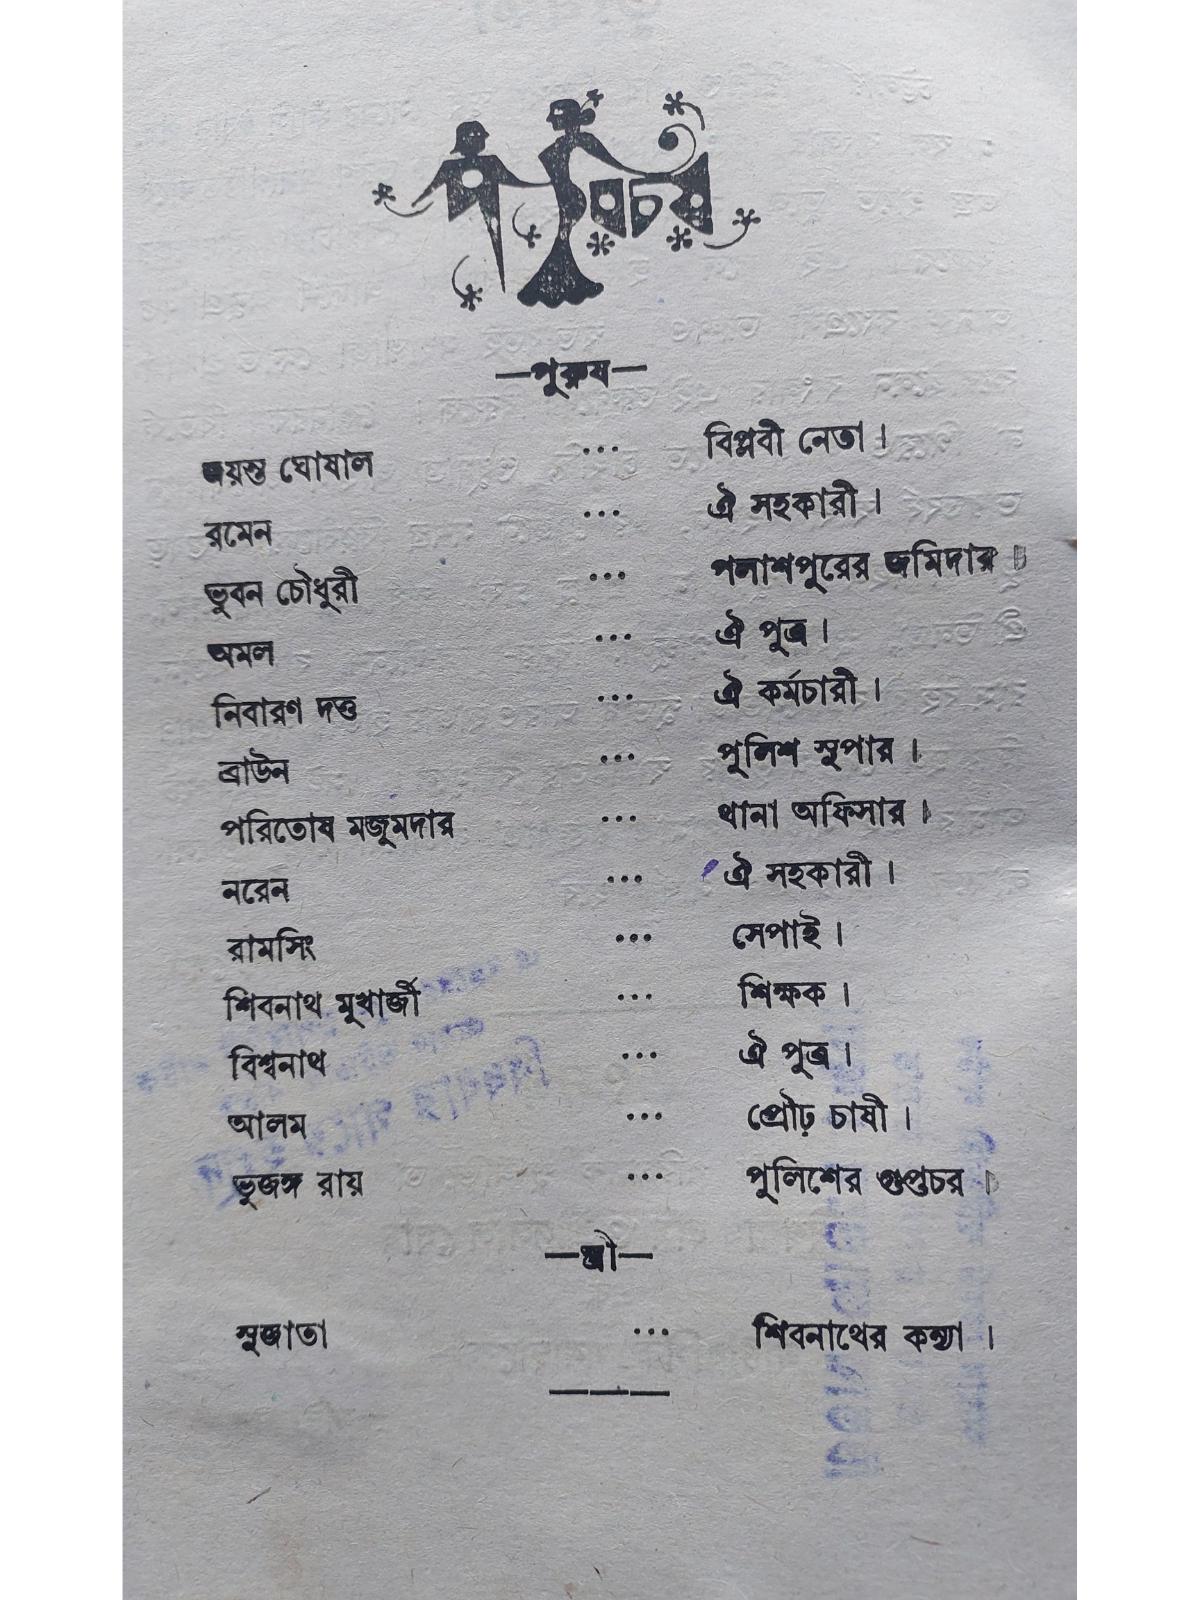 পরিচয়
—পুরুষ—
জয়ন্ত ঘোষাল ... বিপ্লবী নেতা।
রমেন ... ঐ সহকারী।
ভুবন চৌধুরী ... পলাশপুরের জমিদার।
অমল ... ঐ পুত্র।
নিবারণ দত্ত ... ঐ কর্মচারী।
ব্রাউন ... পুলিশ সুপার।
পরিতোষ মজুমদার ... থানা অফিসার।
নরেন ... ঐ সহকারী।
রামসিং ... সেপাই।
শিবনাথ মুখার্জী ... শিক্ষক।
বিশ্বনাথ ... ঐ পুত্র।
আলম ... প্রৌঢ় চাষী।
ভুজঙ্গ রায় ... পুলিশের গুপ্তচর।
—স্ত্রী—
সুজাতা ... শিবনাথের কন্যা।